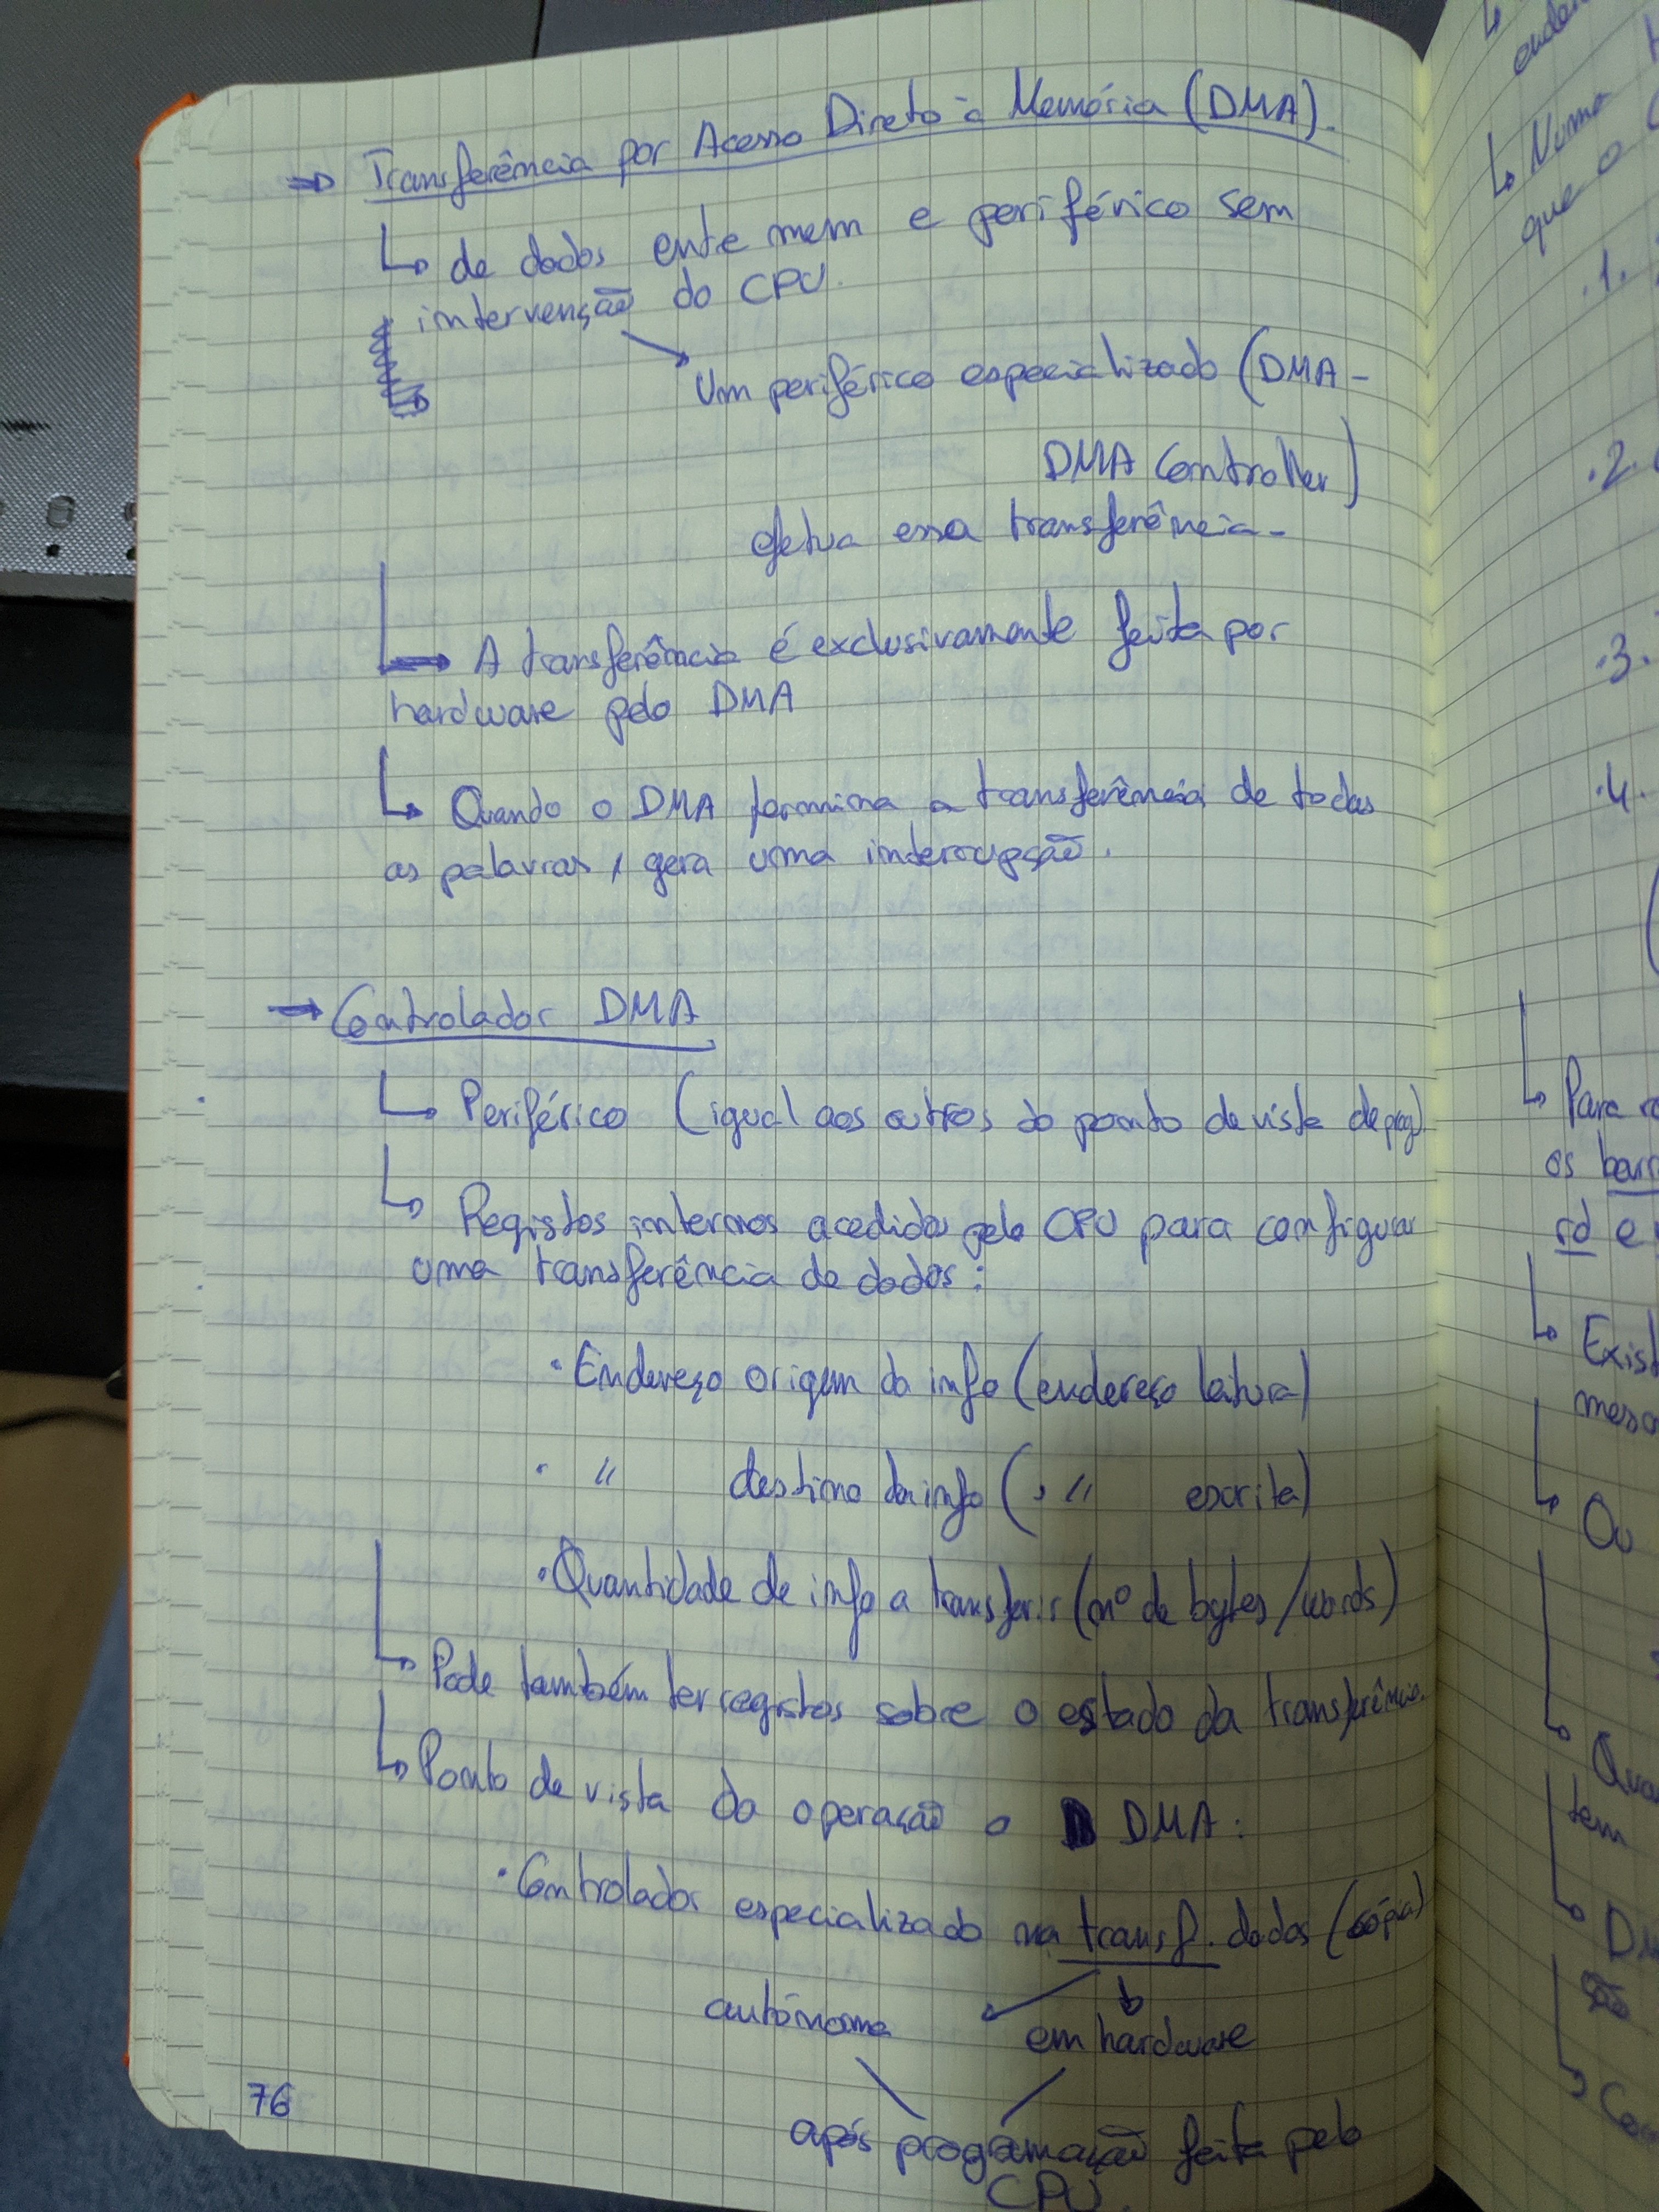 ⇒ Transferência por Acesso Direto à Memória (DMA).
↳ de dados ente mem e periférico sem
intervenção do CPU.
Um periférico especializado (DMA -
DMA Controller)
efetua essa transferência.
↳ A transferência é exclusivamente feita por
hardware pelo DMA
↳ Quando o DMA termina a transferência de todas
as palavras, gera uma interrupção.
→ Controlador DMA
↳ Periférico (igual aos outros do ponto de vista de prog)
↳ Registos internos acedidos pelo CPU para configurar
uma transferência de dados:
• Endereço origem da info (endereço leitura)
• " destino da info ( " escrita)
• Quantidade de info a transferir (nº de bytes/words)
↳ Pode também ter registos sobre o estado da transferência.
↳ Ponto de vista da operação o DMA:
• Controlador especializado na transf. dados (cópia)
autónoma em hardware
após programação feita pelo
CPU.
76
↳ Numa
que o
.1.
.2.
.3.
.4.
↳ Para
os
rd e
↳ Exist
↳ Ou
tem